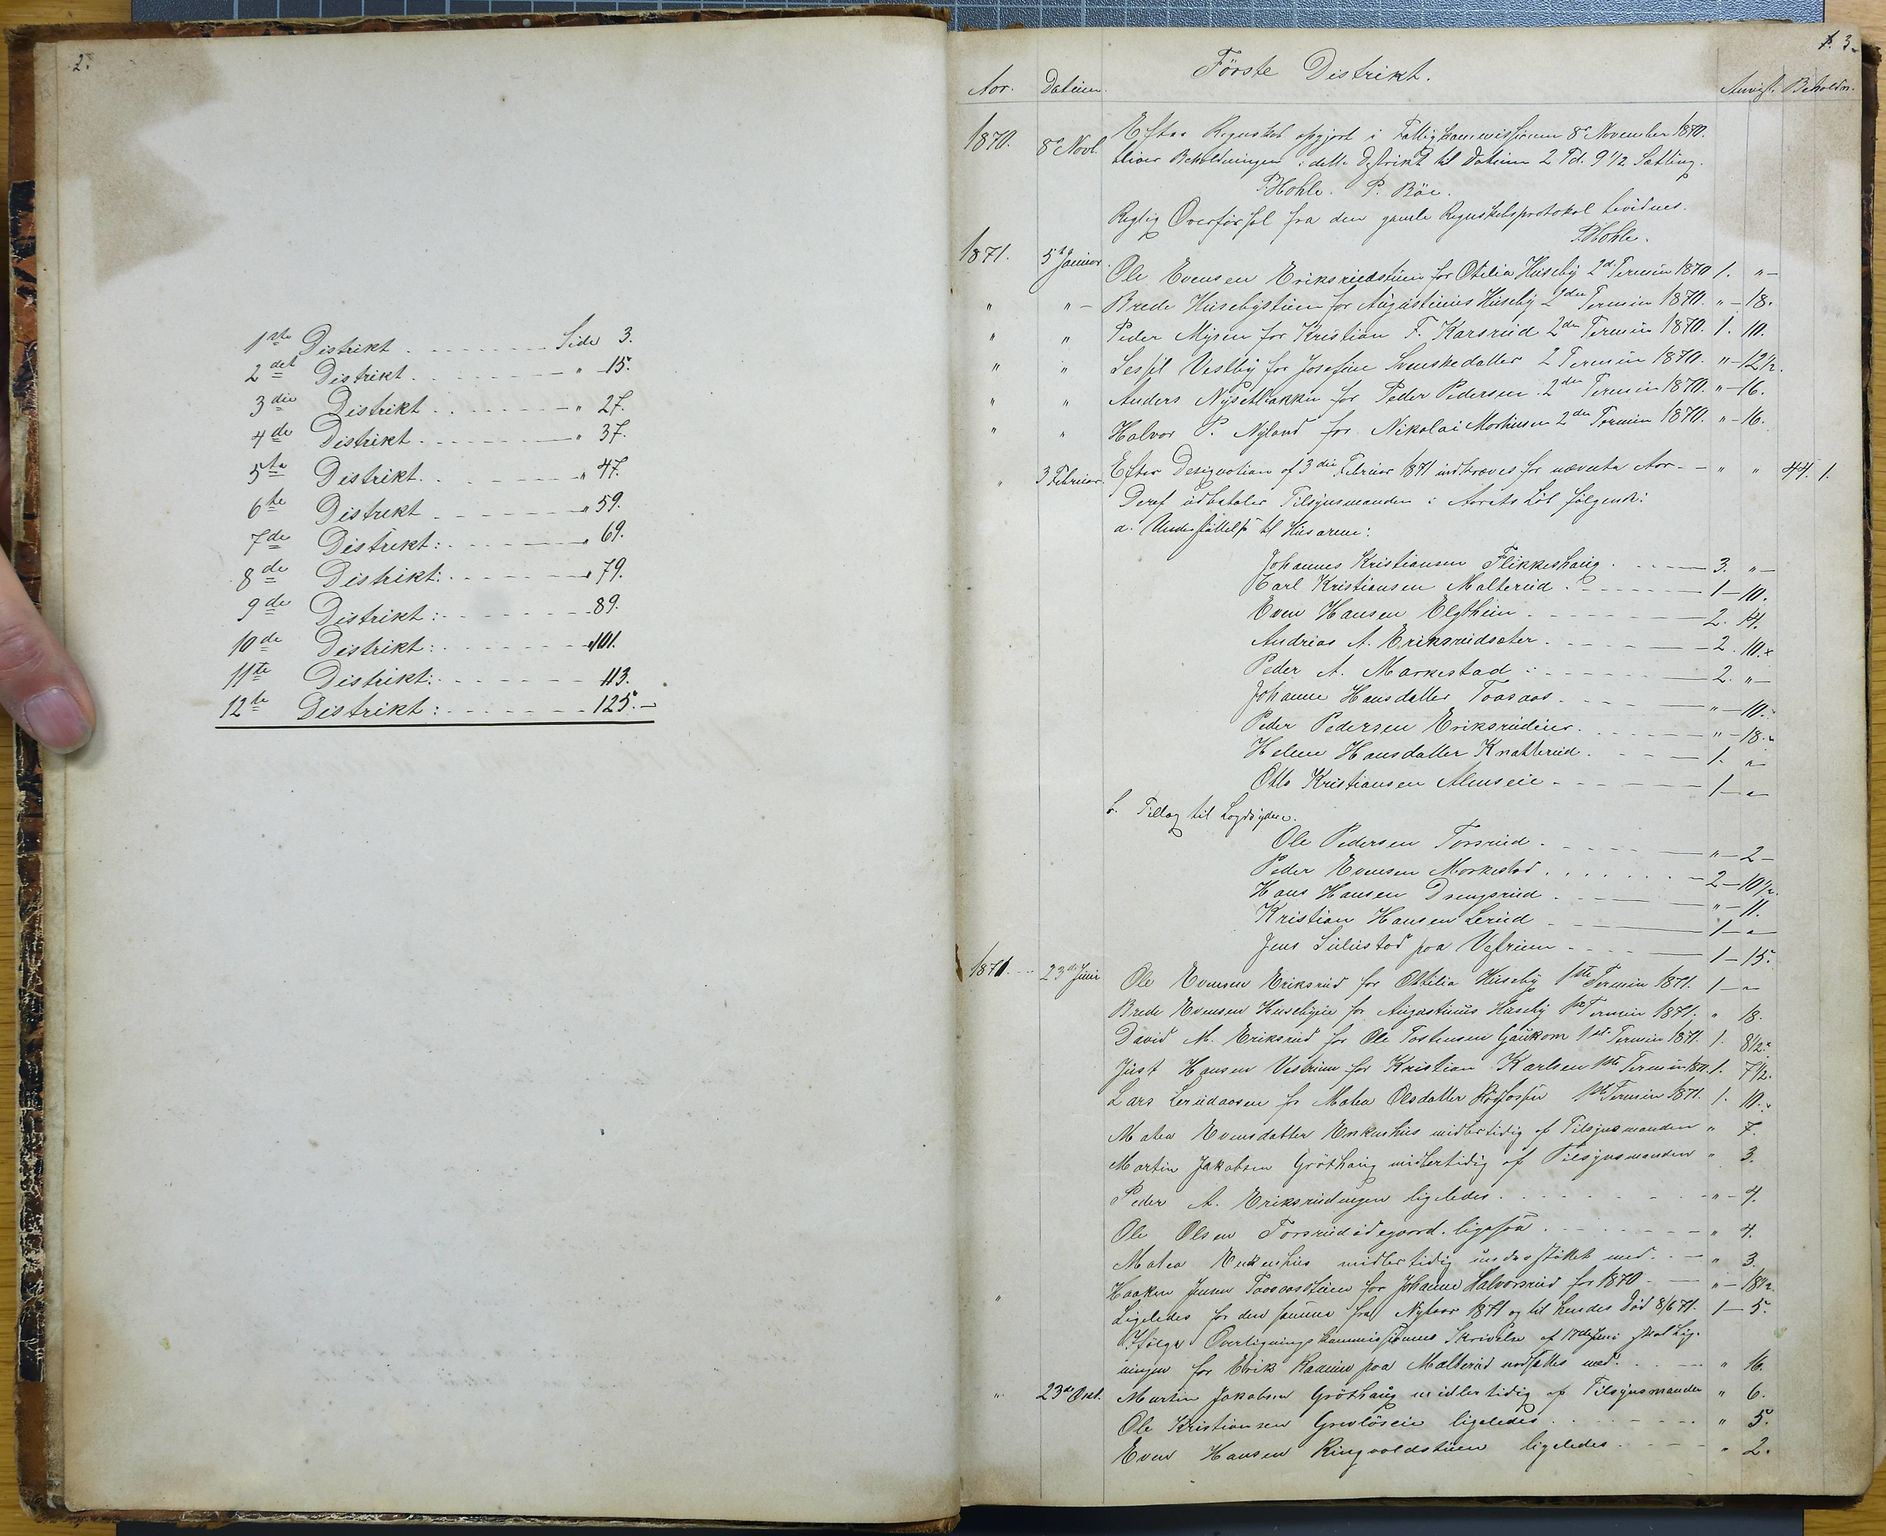 2.
1ste Distrikt Side 3.
2det Distrikt " 15.
3die Distrikt " 27.
4de Distrikt " 37.
5te Distrikt " 47.
6te Distrikt " 59.
7de Distrikt: " 69.
8de Distrikt: " 79.
9de Distrikt: 89.
10de Distrikt: 101.
11te Distrikt: 113.
12te Distrikt: 125.
3.
Første Distrikt.
Aar. Datum. Anvist. Beholdn.
1870. 8de Novbr. Efter Regnskab opgjort i Fattigkommissionen 8de November 1870.
bliver Beholdningen i dette Distrikt til Datum 2 Td. 9 1/2 Sætting.
P. Böe.
Rigtig Overførsel fra den gamle Regnskabsprotokol bevidnes.
1871. 5te Januar. Ole Evensen Eriksrudstuen for Otilia Huseby 2den Termin 1870 1. "
" " Brede Husebystuen for Augustinus Huseby 2den Termin 1870. " 18.
" " Peder Mysen for Kristian F. Karsrud 2den Termin 1870. 1. 10.
" " Vestby for Josefine Svenskedatter 2 Termin 1870. " 12 1/2.
" " Anders Nysetbakken for Peder Pedersen 2den Termin 1870. " 16.
" " Halvor P. Nyland for Nikolai 2den Termin 1870. " 16.
" 3 Februar. Efter Designation af 3die Februar 1871 indkræves for nævnte Aar " " 44. 1.
Deraf udbetaler Tilsynsmanden i Aarets Løb følgende:
a. Understøttelse til Husarme:
Johannes Kristiansen Flikkeshaug. 3. "
Karl Kristiansen Malterud. 1 10.
Even Hansen Elgtheim. 2. 14.
Andreas A. Eriksrudsæter. 2. 10.
Peder A. Markestad 2. "
Johanne Hansdatter Taasaas. " 10.
Peder Pedersen Eriksrudeier. " 18.
Helene Hansdatter Knatterud. 1. "
Otto Kristiansen Almseie 1 "
b. Tillæg til Lægdsydere.
Ole Pedersen Torsrud. " 2
Peder Evensen Markestad. 2 10 1/2.
Hans Hansen Drengsrud. " 11.
Kristian Hansen Lerud 1 "
Jens paa Vestrum 1 15.
1871. 23de Juni Ole Evensen Eriksrud for Ottilia Huseby 1ste Termin 1871. 1 "
Brede Evensen Husebyeie for Augustinus Huseby 1ste Termin 1871. " 18.
David M. Eriksrud for Ole Tostensen Gaukom 1ste Termin 1871. 1. 8 1/2.
Just Hansen Vestrum for Kristian Karlsen 1ste Termin 1871. 1. 7 1/2.
Lars Lerudaasen for Matea Olsdatter 1ste Termin 1871. 1. 10.
Matea Evensdatter Enkeshus midlertidig af Tilsynsmanden " 7.
Martin Jakobsen Grøthaug midlertidig af Tilsynsmanden " 3.
Peder A. Eriksrudengen ligeledes. " 4.
Ole Olsen Torsrudødegaard. ligesaa " 4.
Matea Enkeshus midlertidig understøttet med. " 3.
" Haaken Jensen Taasaasstuen for Johanne Halvorsrud for 1870. " 18 1/2
Ligeledes for den samme fra Nytaar 1871 og til hendes Død 8/6 71. 1 5.
Ifølge Overligningskommissionens Skrivelse af 17de Juni skal Lig-
ningen for Erik paa Malterud nedsættes med. " 16.
" 23de Okt. Martin Jakobsen Grøthaug midlertidig af Tilsynsmanden " 6.
Ole Kristiansen Grevløseie ligeledes. " 5.
Even Hansen Ringvoldstuen ligeledes. " 2.